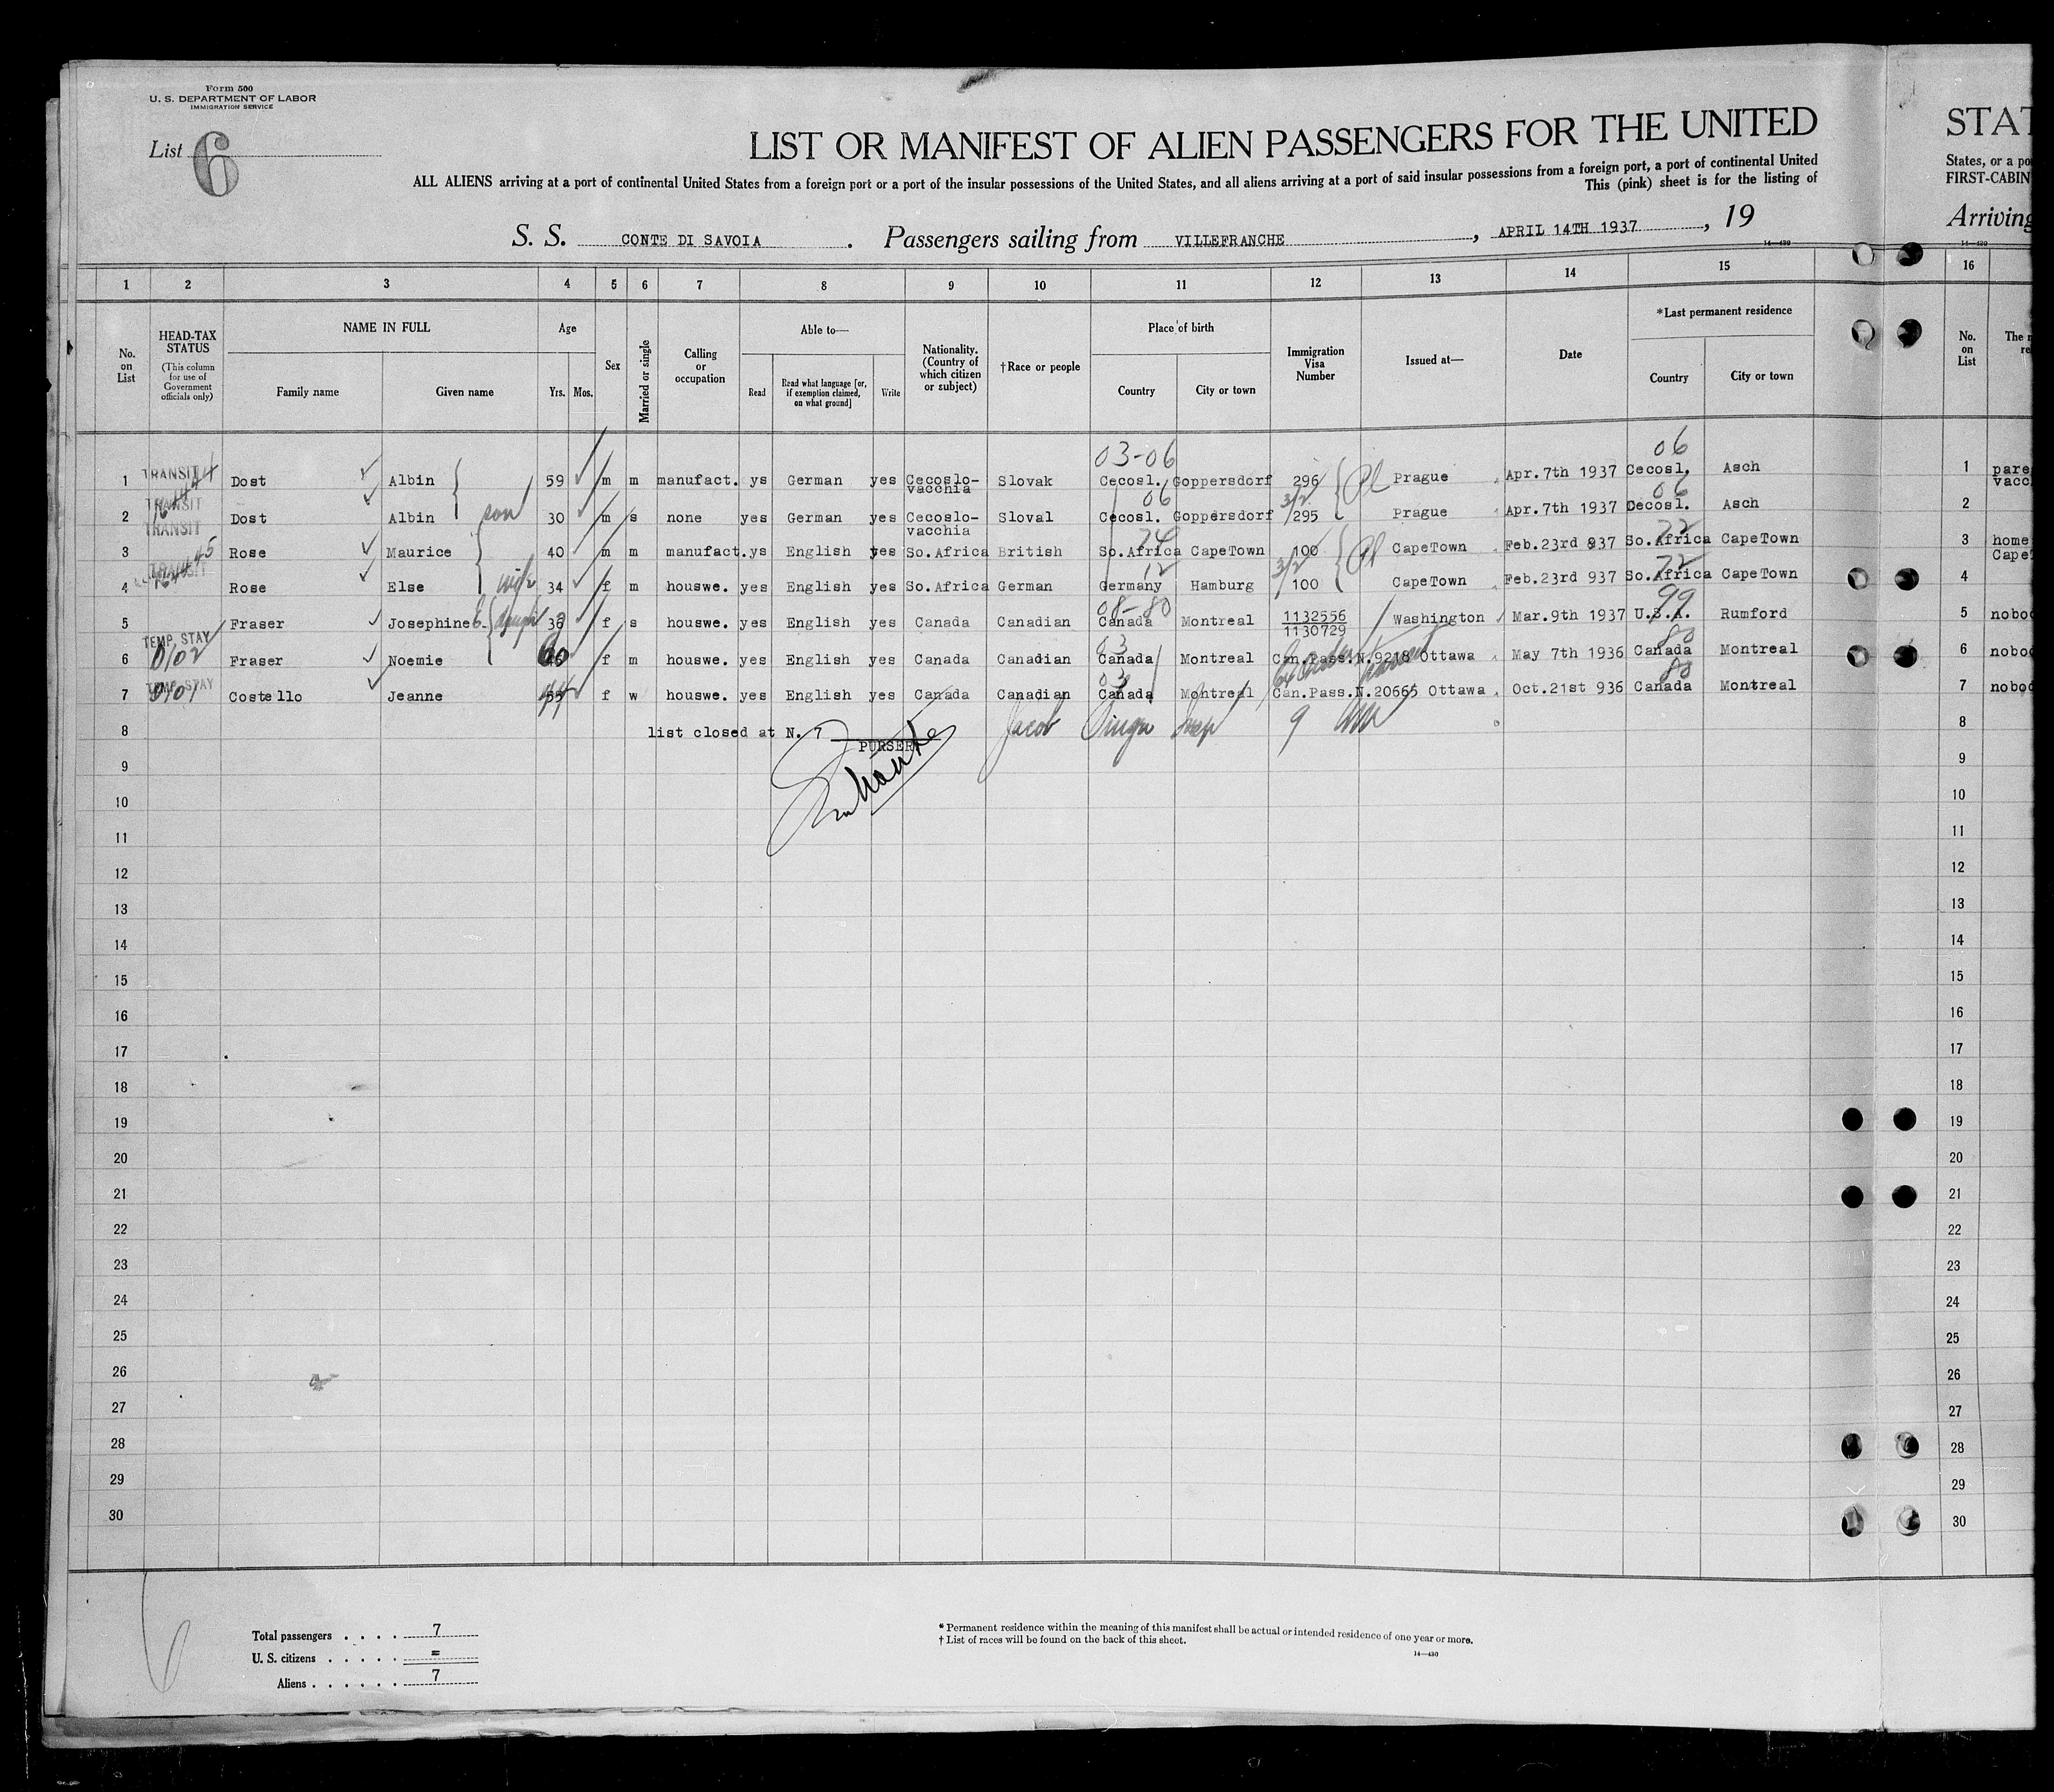 Form 500
U. S. DEPARTMENT OF LABOR
IMMIGRATION SERVICE
List 6
LIST OR MANIFEST OF ALIEN PASSENGERS FOR THE UNITED
STAT
ALL ALIENS arriving at a port of continental United States from a foreign port or a port of the insular possessions of the United States, and all aliens arriving at a port of said insular possessions from a foreign port, a port of continental United
States, or a po
This (pink) sheet is for the listing of
FIRST-CABIN
S. S. CONTE DI SAVOIA . Passengers sailing from VILLEFRANCHE , APRIL 14TH 1937 , 19
Arriving
14—430
14—430
1 2 3 4 5 6 7 8 9 10 11 12 13 14 15 16
No. on List
HEAD-TAX STATUS
(This column for use of Government officials only)
NAME IN FULL
Family name Given name
Age
Yrs. Mos.
Sex
Married or single
Calling or occupation
Able to—
Read
Read what language [or, if exemption claimed, on what ground]
Write
Nationality. (Country of which citizen or subject)
†Race or people
Place of birth
Country City or town
Immigration Visa Number
Issued at—
Date
*Last permanent residence
Country City or town
No. on List
The n
re
03-06 06
1 TRANSIT Dost Albin 59 m m manufact. ys German yes Cecoslo-vacchia Slovak Cecosl. Goppersdorf 296 Prague Apr.7th 1937 Cecosl. Asch 1 pare
vacc
TRANSIT 06 3/2 06
2 Dost Albin son 30 m s none yes German yes Cecoslo-vacchia Sloval Cecosl. Goppersdorf 295 Prague Apr.7th 1937 Cecosl. Asch 2
TRANSIT 72
3 Rose Maurice 40 m m manufact.ys English yes So.Africa British So.Africa CapeTown 100 CapeTown Feb.23rd 937 So.Africa CapeTown 3 home
Cape
TRANSIT 12 3/2 72
4 Rose Else wife 34 f m houswe. yes English yes So.Africa German Germany Hamburg 100 CapeTown Feb.23rd 937 So.Africa CapeTown 4
08-80 99
5 Fraser Josephine E. f s houswe. yes English yes Canada Canadian Canada Montreal 1132556
1130729 Washington Mar.9th 1937 U.S.A. Rumford 5 nobod
TEMP. STAY 03 80
6 0102 Fraser Noemie 60 f m houswe. yes English yes Canada Canadian Canada Montreal Can.Pass.N.9218 Ottawa May 7th 1936 Canada Montreal 6 nobod
TEMP. STAY 03 80
7 0101 Costello Jeanne f w houswe. yes English yes Canada Canadian Canada Montreal Can.Pass.N.20665 Ottawa Oct.21st 936 Canada Montreal 7 nobod
8 list closed at N. 7 Jacob Insp 9 8
PURSER
9 9
10 10
11 11
12 12
13 13
14 14
15 15
16 16
17 17
18 18
19 19
20 20
21 21
22 22
23 23
24 24
25 25
26 26
27 27
28 28
29 29
30 30
Total passengers . . . . 7
U. S. citizens . . . . . =
Aliens . . . . . . 7
* Permanent residence within the meaning of this manifest shall be actual or intended residence of one year or more.
† List of races will be found on the back of this sheet.
14—430